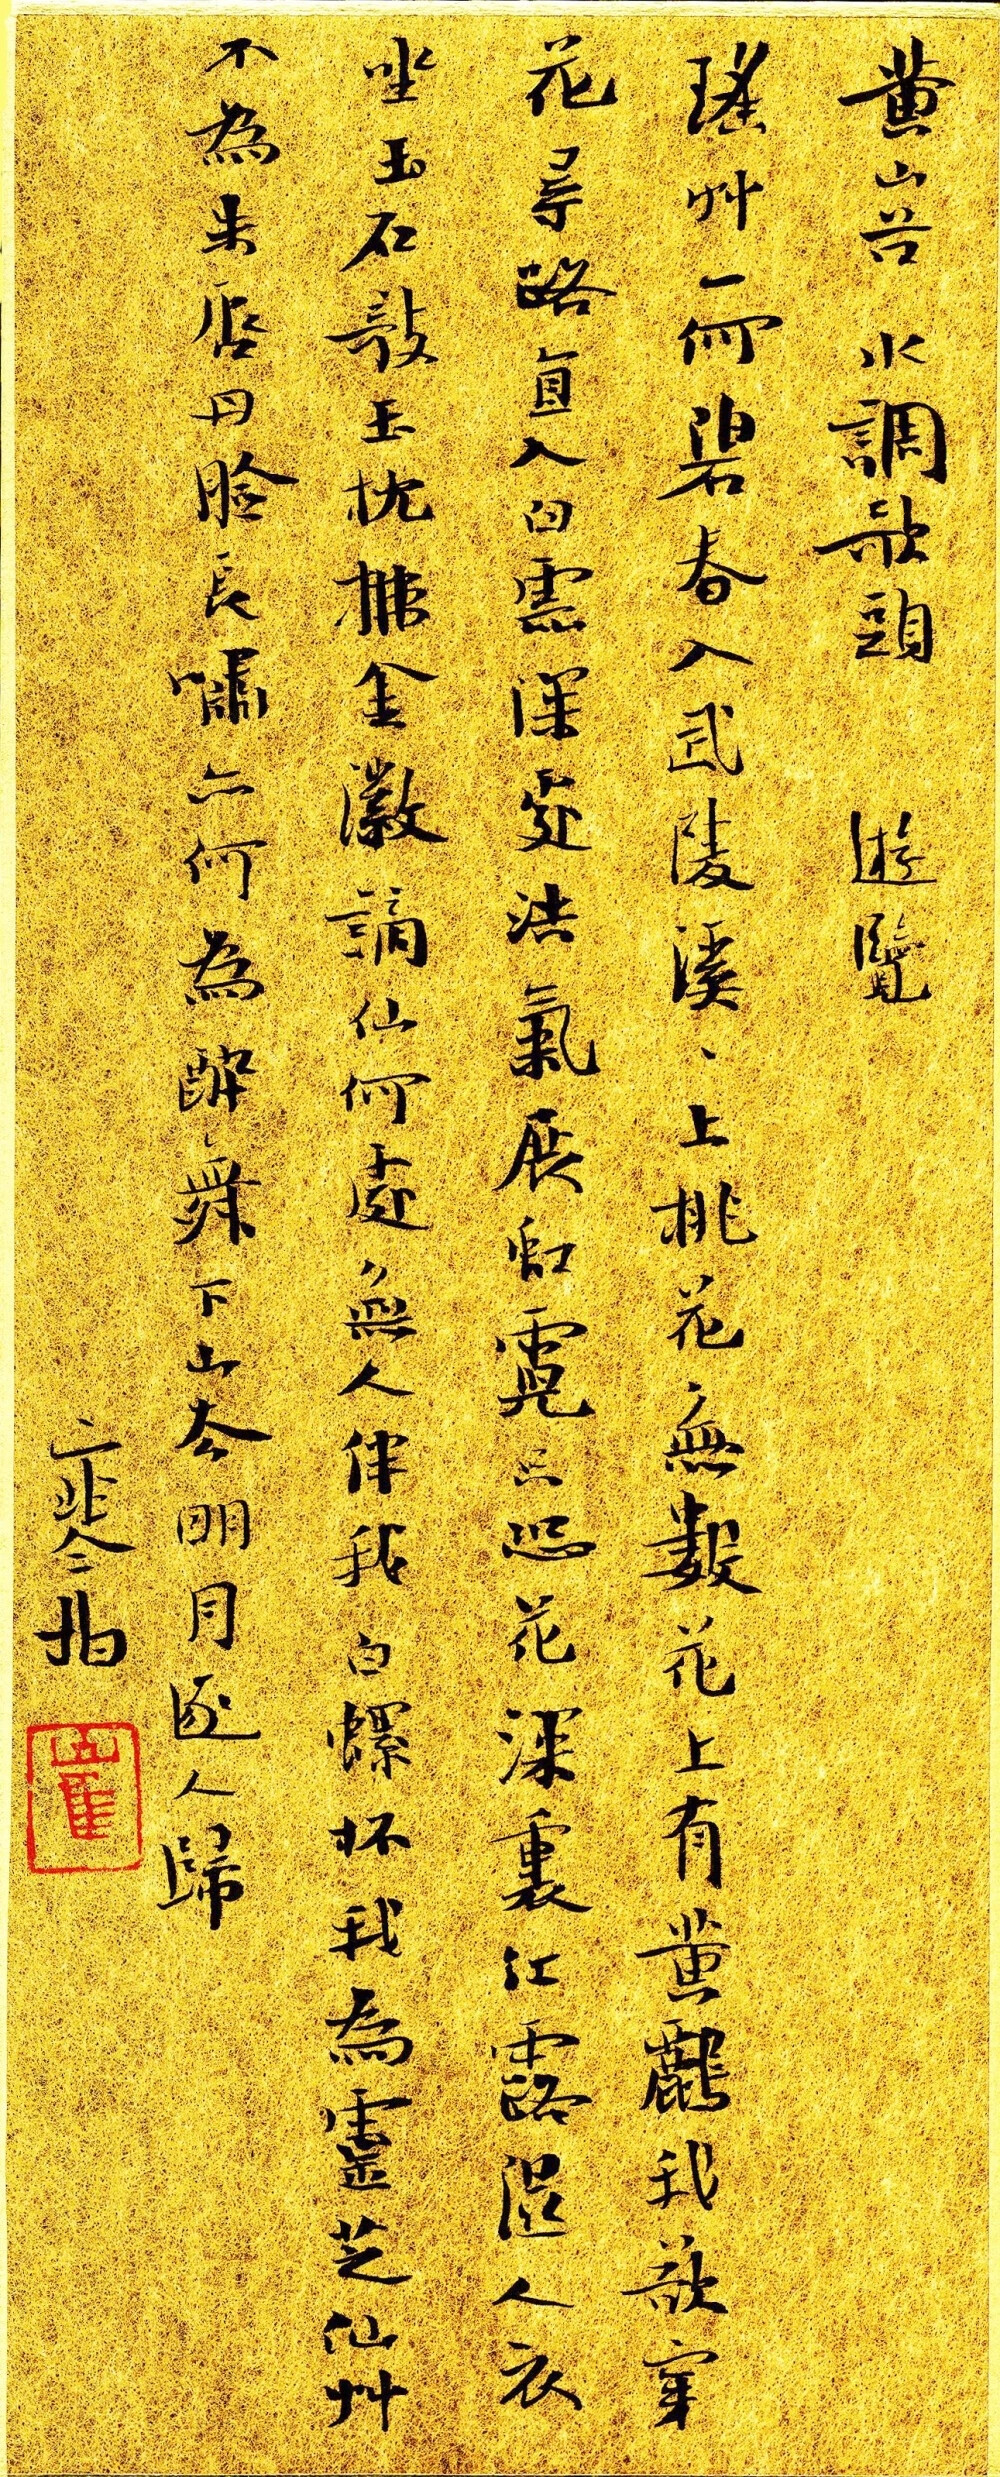 黄山谷 水調歌頭 遊覽
瑤艸一何碧春入武陵溪、上桃花無數花上有黄鸝我欲穿
花尋路直入白雲深處浩氣展虹霓只恐花深裏紅露濕人衣
坐玉石敧玉枕拂金徽謫仙何處無人伴我白螺杯我為靈芝仙艸
不為朱唇丹臉長嘯亦何為醉舞下山去明月逐人歸